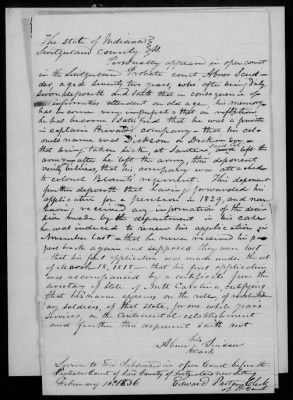 The State of Indiana }
Switzerland County } Sct.
Personally appeared in open court
in the Switzerland Probate court Abner
aged seventy two years, who after being duly
sworn deposeth and saith that in consequence of
infirmities attendant on old age, his memory
has become very imperfect & that on reflection
he has become satisfied that he was a private
in captain company – that his col
onels name was Dickson or Dickinson
that being taken sick at he left the
army after he left the army, this deponent
verily believes, that his company was attached
to colonel regiment. The deponent
further deposeth that having forwarded his
application for a pension in 1829, and never
having received any information of the deci
sion made by the department in his case
he was induced to renew his application in
November last – that he never received his pa
pers back again and supposed they were lost
– that his first application was made under the act
of March 18, 1818 – that his first application
was accompanied by a certificate from the
secretary of State of North Carolina, certifying
that his name appears on the rolls of revolution
ary soldiers, of that state, for one whole years
service, on the Continental establishment
and further this deponent saith not
his
Abner
mark
Sworn to and subscribed in open Court before the
Probate Court of said County of Switzerland now sitting
February 1836 Edward Patton Clerk